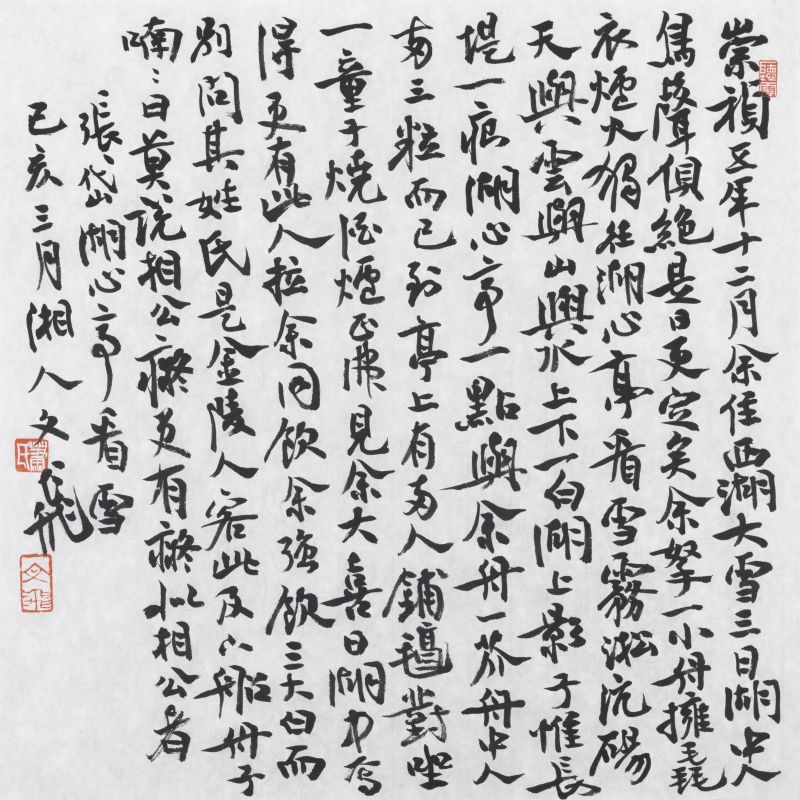 崇禎五年十二月余住西湖大雪三日湖中人
鳥聲俱絕是日更定矣余拏一小舟擁毳
衣爐火獨往湖心亭看雪霧凇沆碭
天與雲與山與水上下一白湖上影子惟長
堤一痕湖心亭一點與余舟一芥舟中人
兩三粒而已到亭上有兩人鋪氈對坐
一童子燒酒爐正沸見余大喜曰湖中焉
得更有此人拉余同飲余強飲三大白而
別問其姓氏是金陵人客此及下船舟子
喃〻曰莫說相公癡更有癡似相公者
張岱湖心亭看雪
己亥三月湘人文飛
蕭氏
文飛